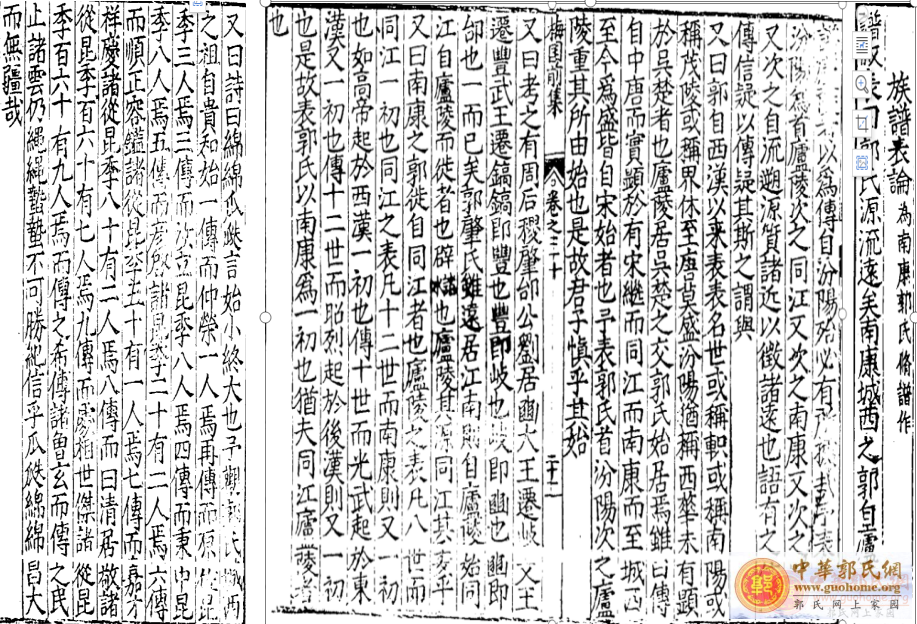 族譜表論為南康郭氏脩譜作
譜叙表曰郭氏源流遠矣南康城西之郭自廬
以為傳自汾陽始必有所據
汾陽為首廬陵次之同江又次之南康又次之
又次之自流遡源質諸近以徵諸遠也語有之
傳信疑以傳疑其斯之謂與
又曰郭自西漢以來表表名世或稱軹或稱南陽或
稱茂陵或稱界休至唐莫盛汾陽猶稱西華未有顯
於吳楚者也廬陵居吳楚之交郭氏始居焉雖曰傳
自中唐而實顯於有宋繼而同江而南康而至城西
至今為盛皆自宋始者也予表郭氏首汾陽次之廬
陵重其所由始也是故君子慎乎其始
梅国前集
卷之二十
二十二
又曰考之有周后稷肇邰公劉居豳大王遷岐 又王
遷豐武王遷鎬鎬即豐也豐即岐也岐即豳也豳即
邰也一而已矣郭肇氏雖遠居江南則自廬陵始同
江自廬陵而徙者也辟諸 也廬陵其 源同江其 乎
又曰南康之郭徙自同江者也廬陵之表凡八世而
同江一初也同江之表凡十二世而南康則又一初
也如高帝起於西漢一初也傳十世而光武起於東
漢又一初也傳十二世而昭烈起於後漢則又一初
也是故表郭氏以南康為一初也猶夫同江廬陵
也
又曰詩曰綿綿瓜瓞言始小終大也予觀郭氏城西
之祖自貴和始一傳而仲榮一人焉再傳而原
季三人焉三傳而汝立昆季八人焉四傳而東中昆
季八人焉五傳而彥 諸昆季二十有二人焉六傳
而順正容鑑諸從昆季三十有一人焉七傳而嘉
祥慶諸從昆季八十有二人焉八傳而曰清居敬諸
從昆季百六十有七人焉九傳而 相世傑諸從昆
季百六十有九人焉而傳之希傳諸魯玄而傳之民
止諸雲仍繩繩蟄蟄不可勝紀信乎瓜瓞綿綿昌大
而無疆哉
中華郭氏網
www.guohome.org
郭氏网上家園